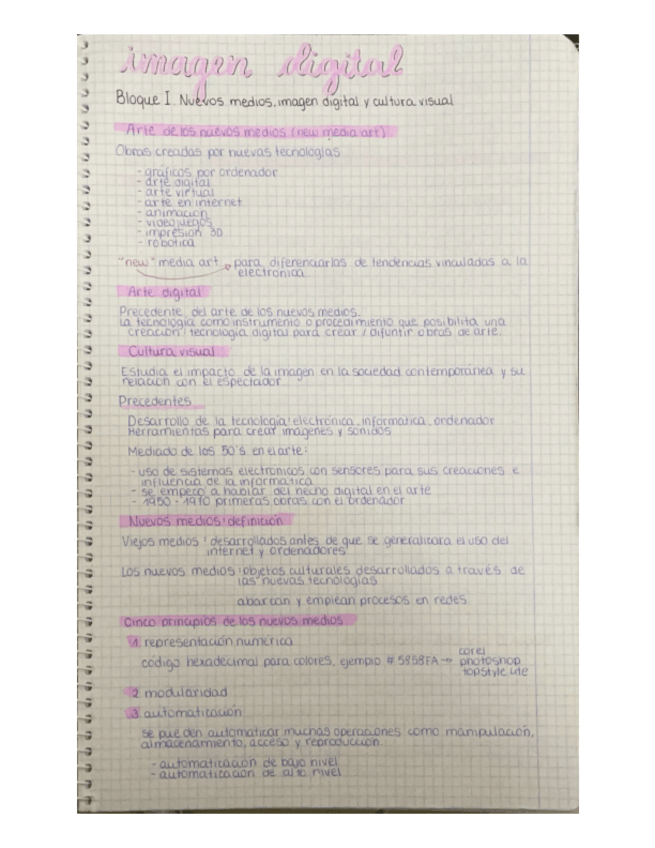 imagen digital
Bloque I. Nuevos medios, imagen digital y cultura visual
Arte de los nuevos medios (new media art)
Obras creadas por nuevas tecnologías
- gráficos por ordenador
- arte digital
- arte virtual
- arte en internet
- animación
- videojuegos
- impresión 3D
- robótica
"new" media art → para diferenciarlos de tendencias vinculadas a la
electrónica
Arte digital
Precedente del arte de los nuevos medios.
La tecnología como instrumento o procedimiento que posibilita una
creación: tecnología digital para crear / difuntir obras de arte.
Cultura visual
Estudia el impacto de la imagen en la sociedad contemporánea y su
relación con el espectador
Precedentes
Desarrollo de la tecnología: electrónica, informática, ordenador
Herramientas para crear imágenes y sonidos
Mediado de los 50's en el arte:
- uso de sistemas electrónicos con sensores para sus creaciones e
influencia de la informática
- se empezó a hablar del hecho digital en el arte
- 1950 - 1970 primeras obras con el ordenador
Nuevos medios: definición
Viejos medios: desarrollados antes de que se generalizara el uso del
internet y ordenadores
Los nuevos medios: objetos culturales desarrollados a través de
las nuevas tecnologías
abarcan y emplean procesos en redes
Cinco principios de los nuevos medios
1 representación numérica
código hexadecimal para colores, ejemplo # 5858FA → corel
photoshop
topStyle lite
2 modularidad
3 automatización
se pueden automatizar muchas operaciones como manipulación,
almacenamiento, acceso y reproducción
- automatización de bajo nivel
- automatización de alto nivel